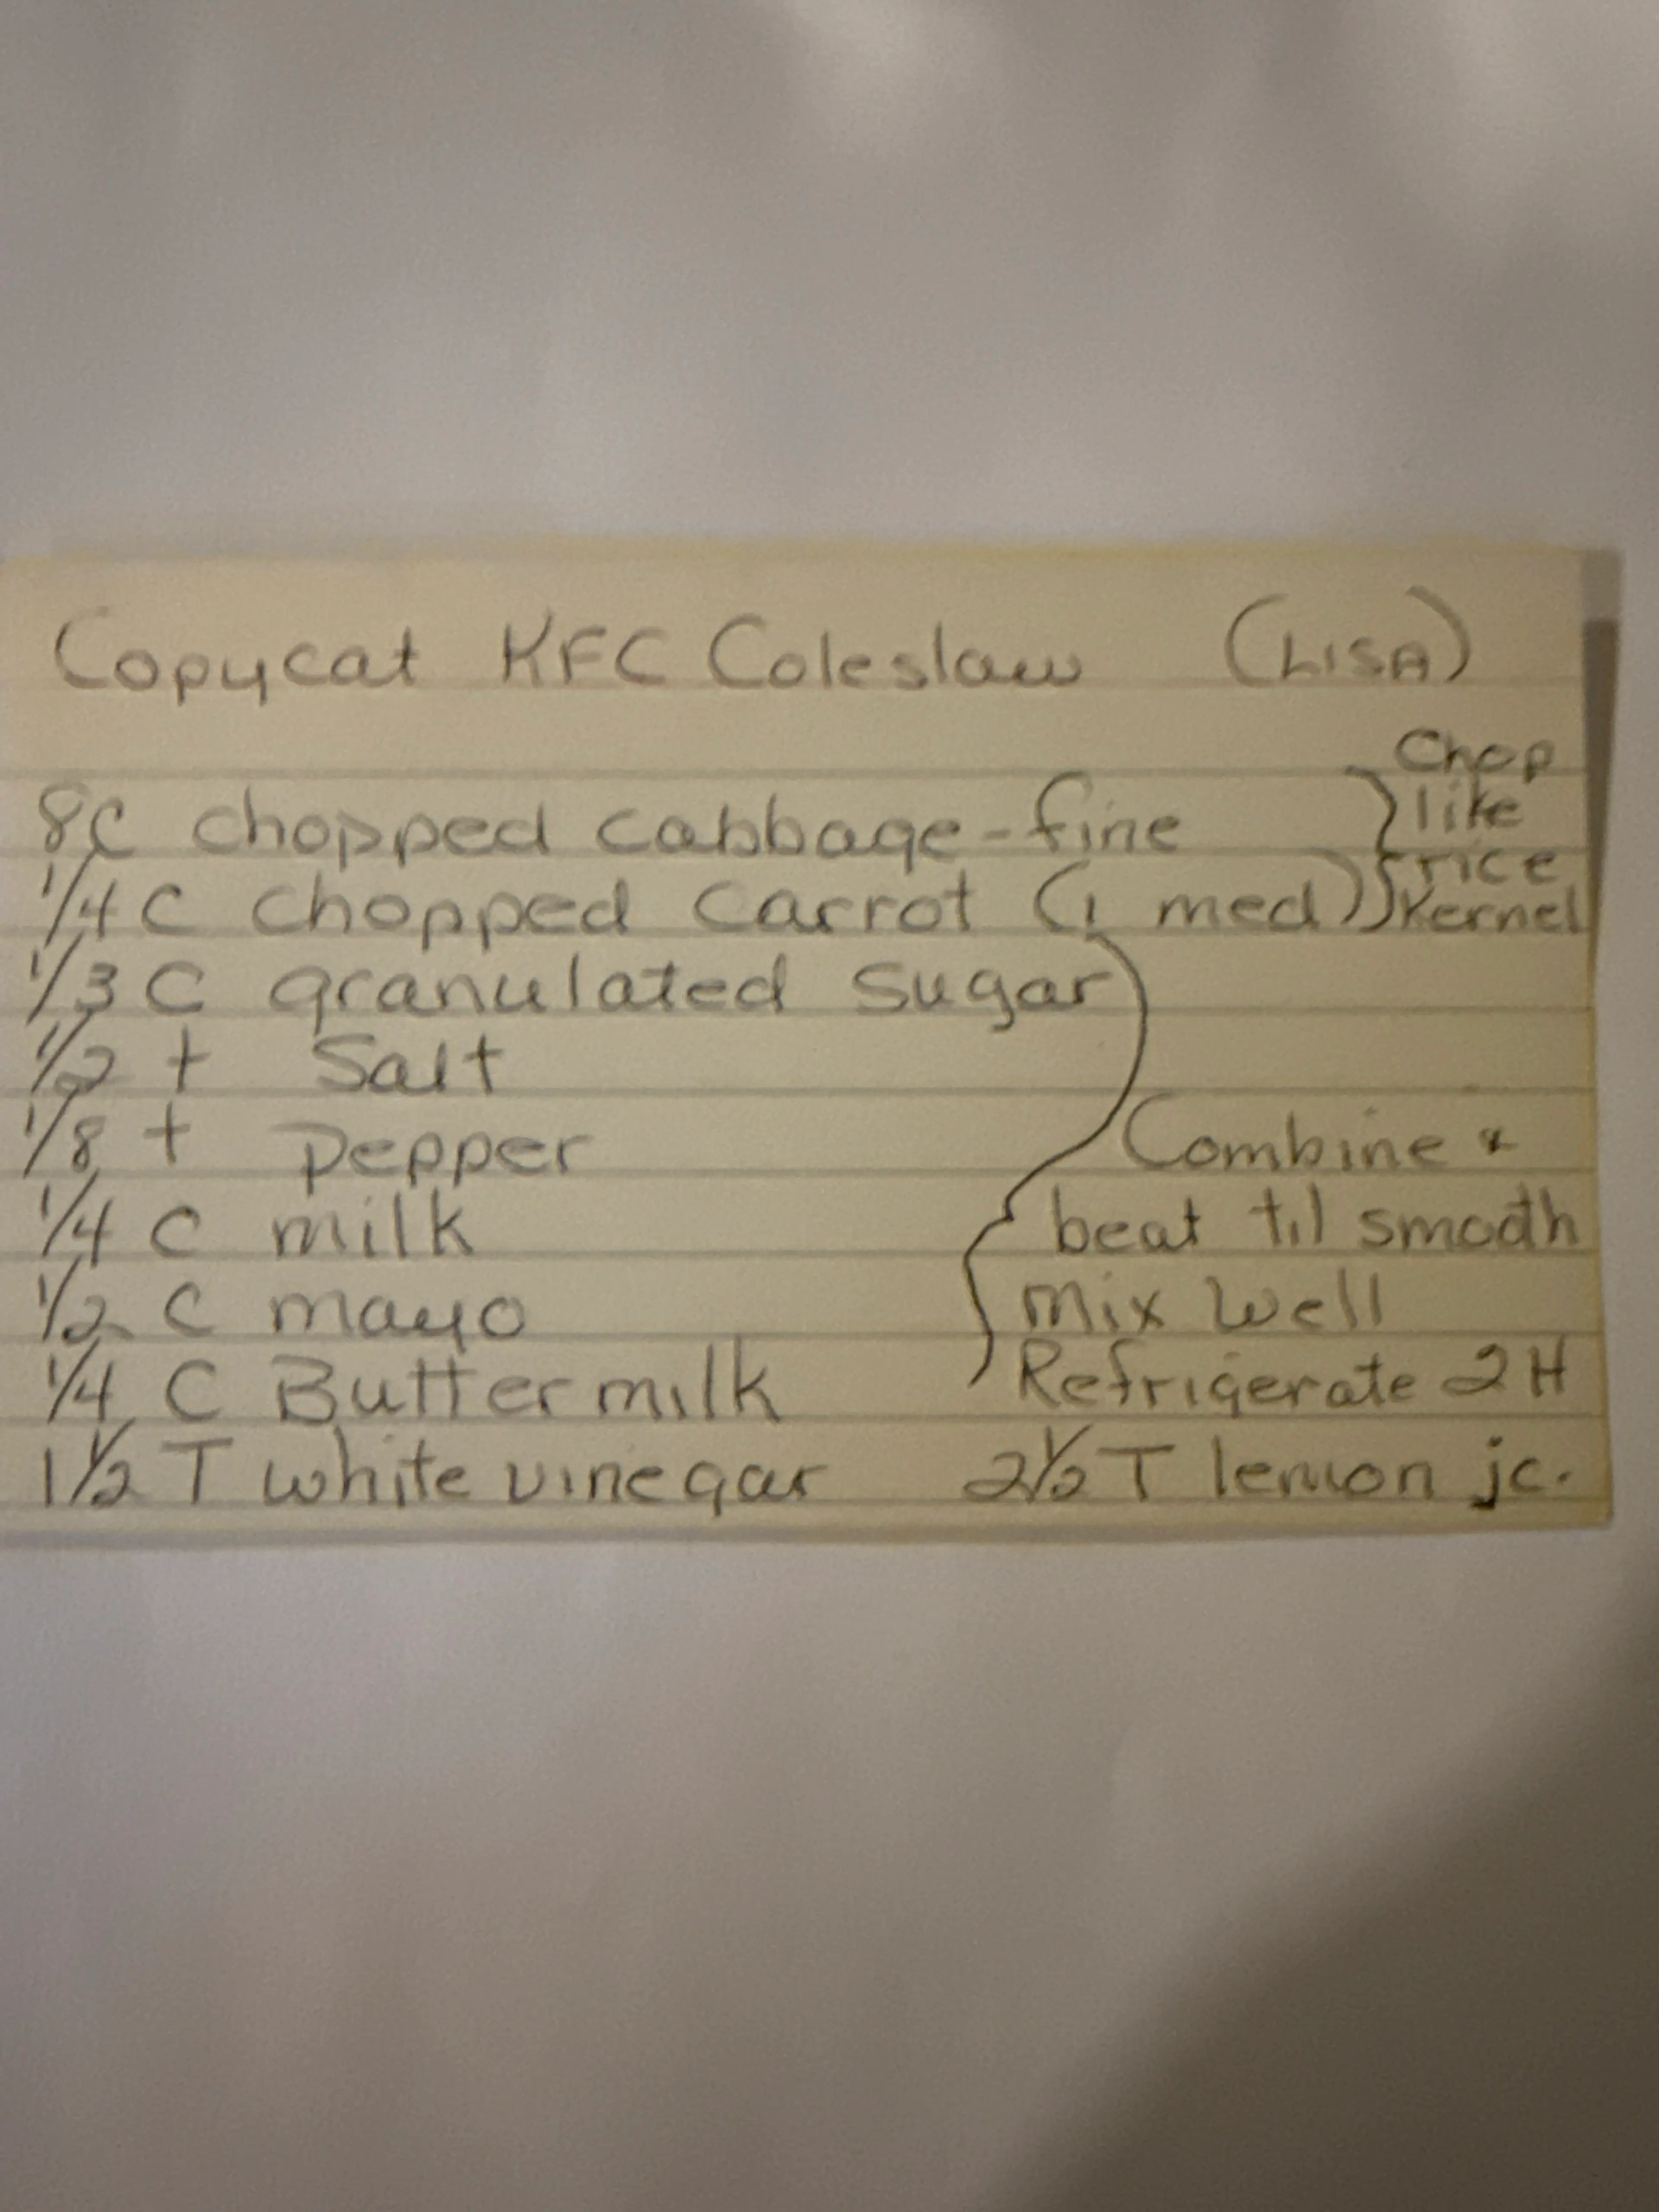 Copycat KFC Coleslaw (LISA)
8C chopped cabbage-fine } Chop like
1/4 C chopped Carrot (1 med) } rice Kernel
1/3 C granulated Sugar
1/2 t Salt
1/8 t pepper Combine &
1/4 C milk beat til smooth
1/2 C mayo mix well
1/4 C Buttermilk Refrigerate 2H
1 1/2 T white vinegar 2 1/2 T lemon jc.